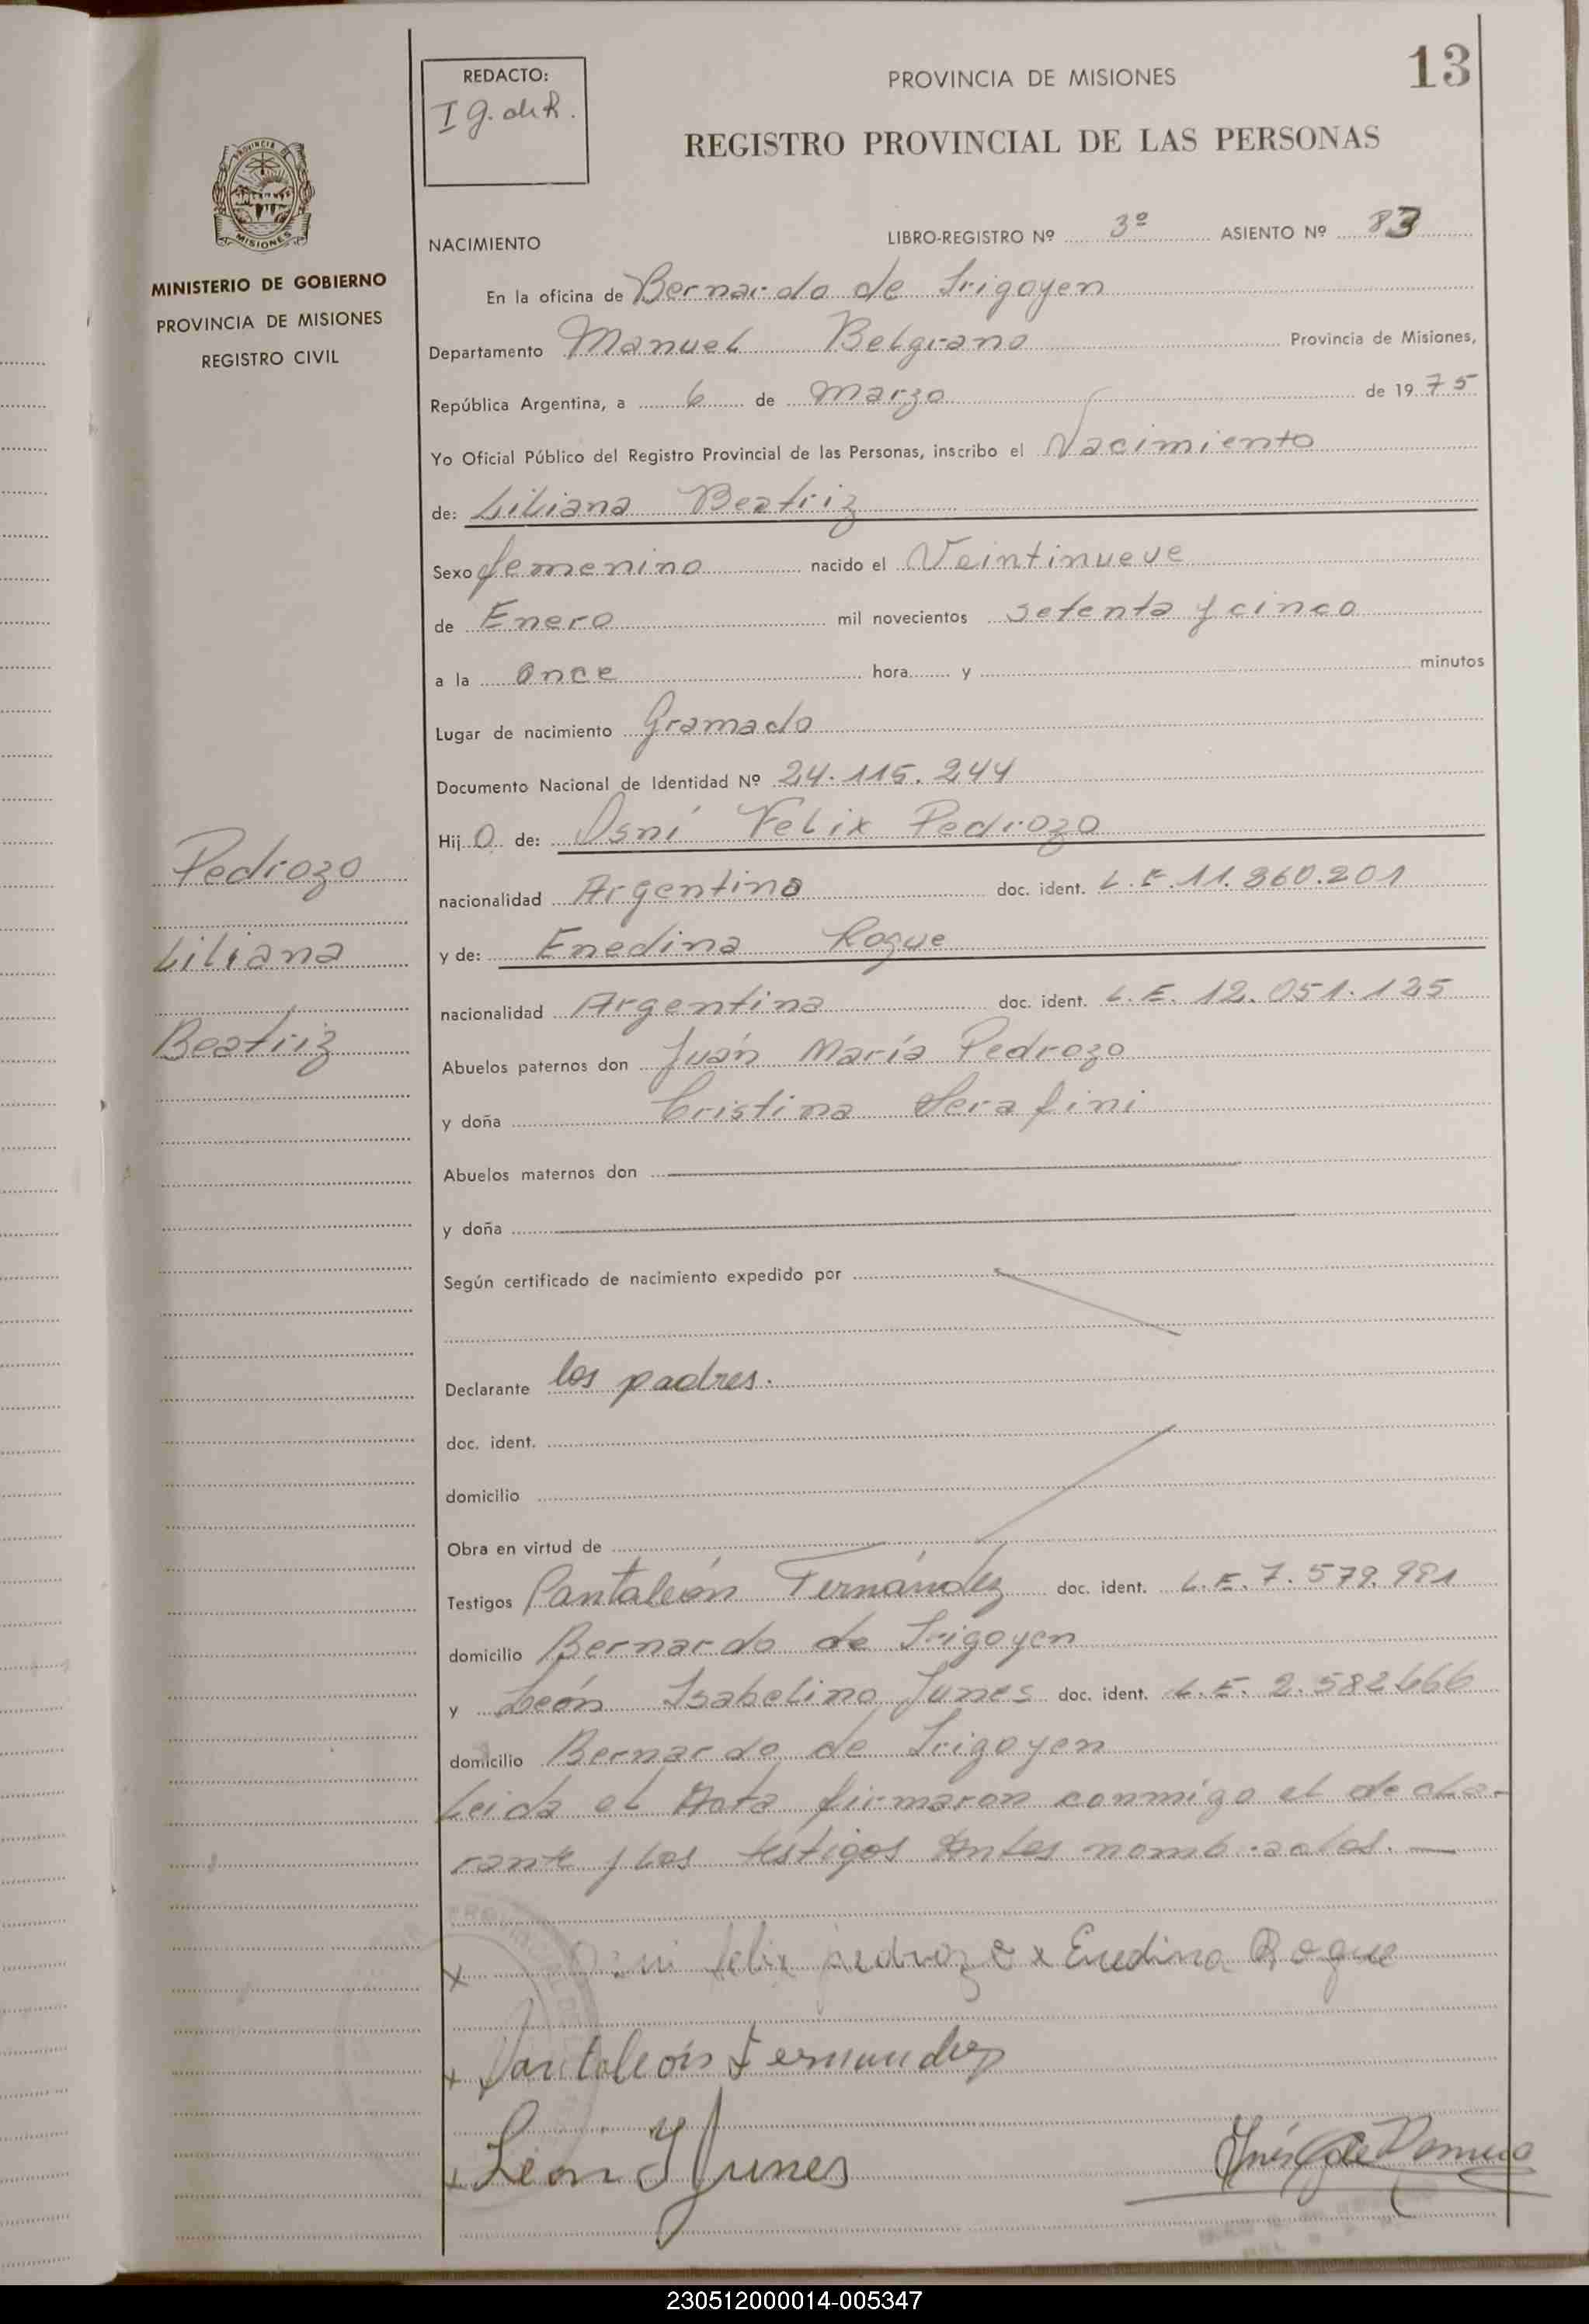 13
REDACTO:
I g. de R.
PROVINCIA DE MISIONES
REGISTRO PROVINCIAL DE LAS PERSONAS
PROVINCIA DE
MISIONES
MINISTERIO DE GOBIERNO
PROVINCIA DE MISIONES
REGISTRO CIVIL
NACIMIENTO LIBRO-REGISTRO Nº 3º ASIENTO Nº 83
En la oficina de Bernardo de Irigoyen
Departamento Manuel Belgrano Provincia de Misiones,
República Argentina, a 6 de Marzo de 1975
Yo Oficial Público del Registro Provincial de las Personas, inscribo el Nacimiento
de: Liliana Beatriz
Sexo femenino nacido el Veintinueve
de Enero mil novecientos setenta y cinco
a la Once hora y minutos
Lugar de nacimiento Gramado
Documento Nacional de Identidad Nº 24.115.244
Hij O de: Osni Felix Pedrozo
nacionalidad Argentino doc. ident. L.E. 11.360.201
y de: Enedina Roque
nacionalidad Argentina doc. ident. L.E. 12.051.125
Abuelos paternos don Juán María Pedrozo
y doña Cristina Serafini
Abuelos maternos don
y doña
Según certificado de nacimiento expedido por
Declarante los padres.
doc. ident.
domicilio
Obra en virtud de
Testigos Pantaleón Fernández doc. ident. L.E. 7.579.981
domicilio Bernardo de Irigoyen
y León Isabelino Junes doc. ident. L.E. 2.582.666
domicilio Bernardo de Irigoyen
Leida el Acta firmaron conmigo el decla-
rante y los testigos antes nombrados.
Pedrozo
Liliana
Beatriz
x Osni felix pedrozo x Enedina Roque
x Pantaleón Fernandez
x León I Junes
230512000014-005347